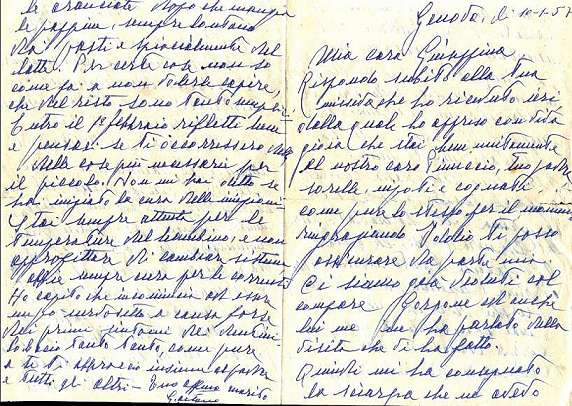 Genova, li 10-1-57
Mia cara Giuseppina
Rispondo subito alla tua
missiva che ho ricevuto ieri
dalla quale ho appreso con tanta
gioia che stai bene unitamente
al nostro caro tuo padre
sorelle, nipoti e cognati
come pure lo stesso per il momento
ringraziando Iddio ti posso
assicurare da parte mia.
Ci siamo già veduti col
compare ed anche
lui me ne ha parlato della
visita che ti ha fatto.
Quindi mi ha consegnato
la sciarpa che ne avevo
le dopo che mangia
le pappine, sempre lontano
dai pasti e specialmente del
latte. Per certe cose non so
come fai a non volere capire,
che del resto sono tanto semplici
Entro il 1º febbraio rifletti bene
e pensa se ti occorressero delle
delle cose più necessarie per
il piccolo. Non mi hai detto se
hai iniziato la cura delle iniezioni
Stai sempre attenta per le
temperature del bambino, e non
approfittare di cambiar sistema
abbie sempre cura per le correnti
Ho capito che incomincia ad essere
un po' a causa forse
dei primi sintomi dei dentini
bacio tanto tanto, come pure
a te ti abbraccio insieme al padre
e tutti gli altri - Tuo aff.mo marito
Gaetano